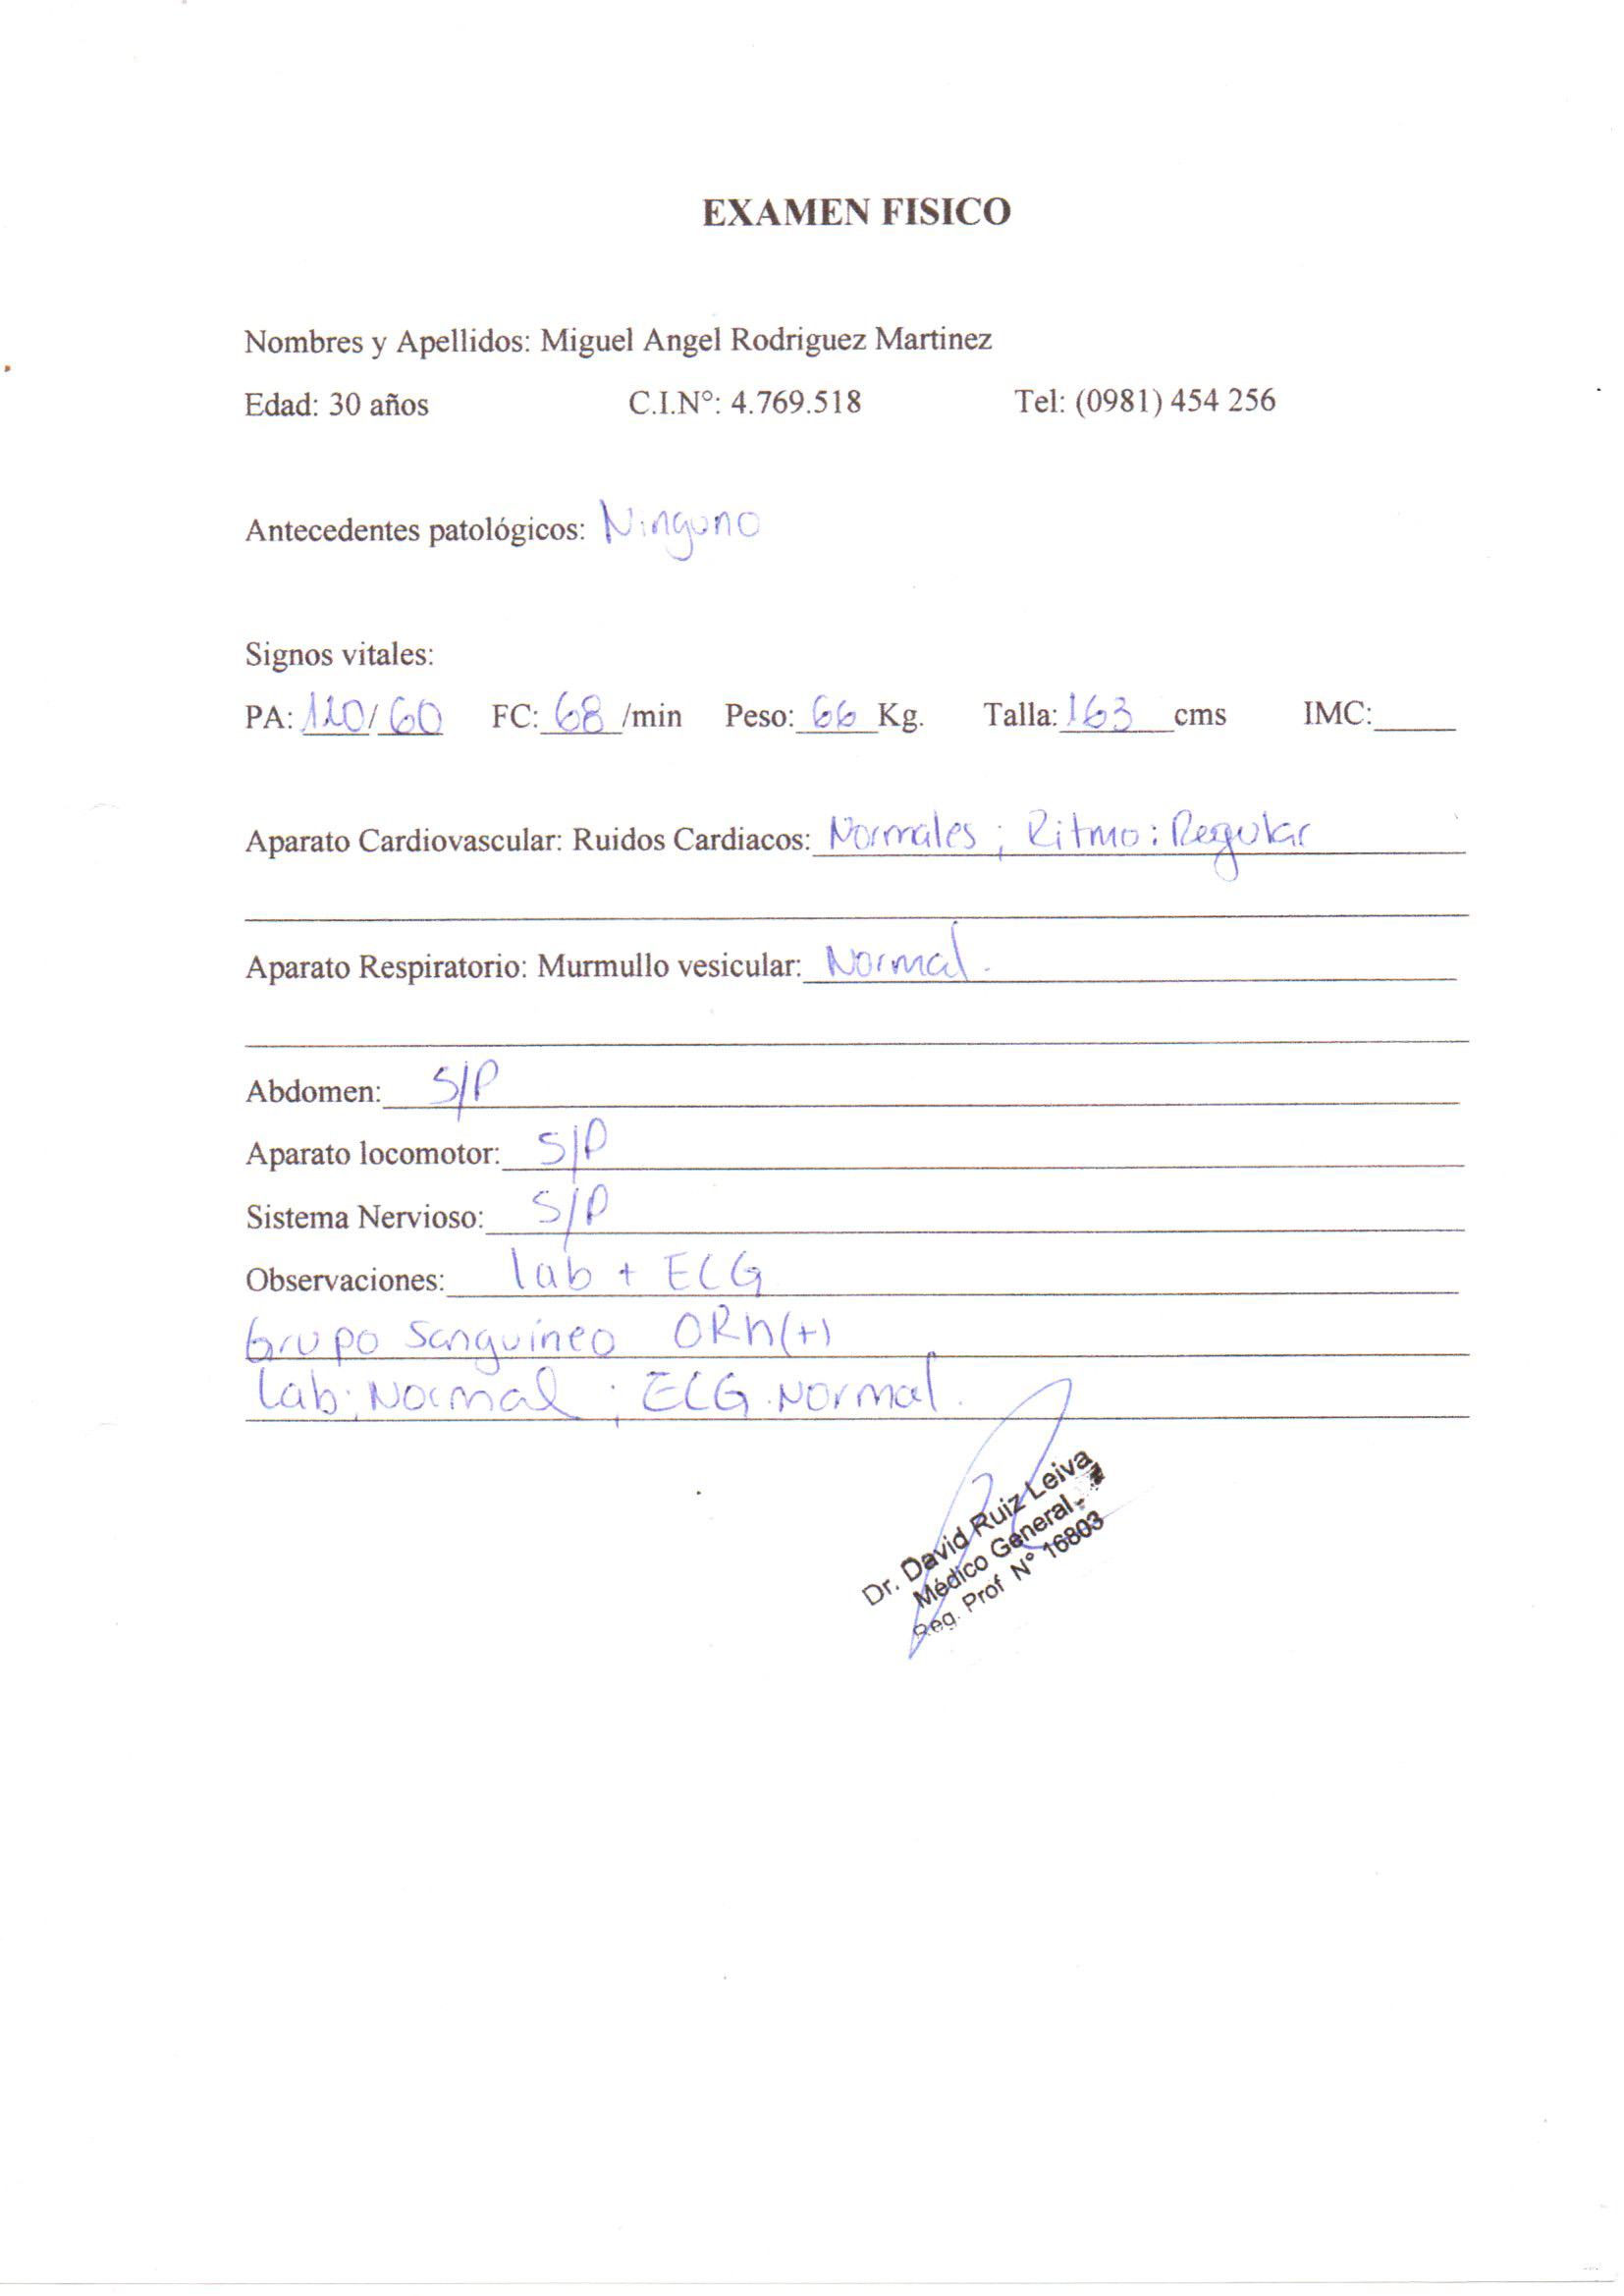 EXAMEN FISICO
Nombres y Apellidos: Miguel Angel Rodriguez Martinez
Edad: 30 años C.I.N°: 4.769.518 Tel: (0981) 454 256
Antecedentes patológicos: Ninguno
Signos vitales:
PA: 110/60 FC: 68 /min Peso: 66 Kg. Talla: 163 cms IMC:
Aparato Cardiovascular: Ruidos Cardiacos: Normales ; Ritmo: Regular
Aparato Respiratorio: Murmullo vesicular: Normal.
Abdomen: S/P
Aparato locomotor: S/P
Sistema Nervioso: S/P
Observaciones: lab + ECG
Grupo Sanguíneo ORh(+)
Lab: Normal ; ECG. Normal.
Dr. David Ruiz Leiva
Médico General
Reg. Prof N° 16803